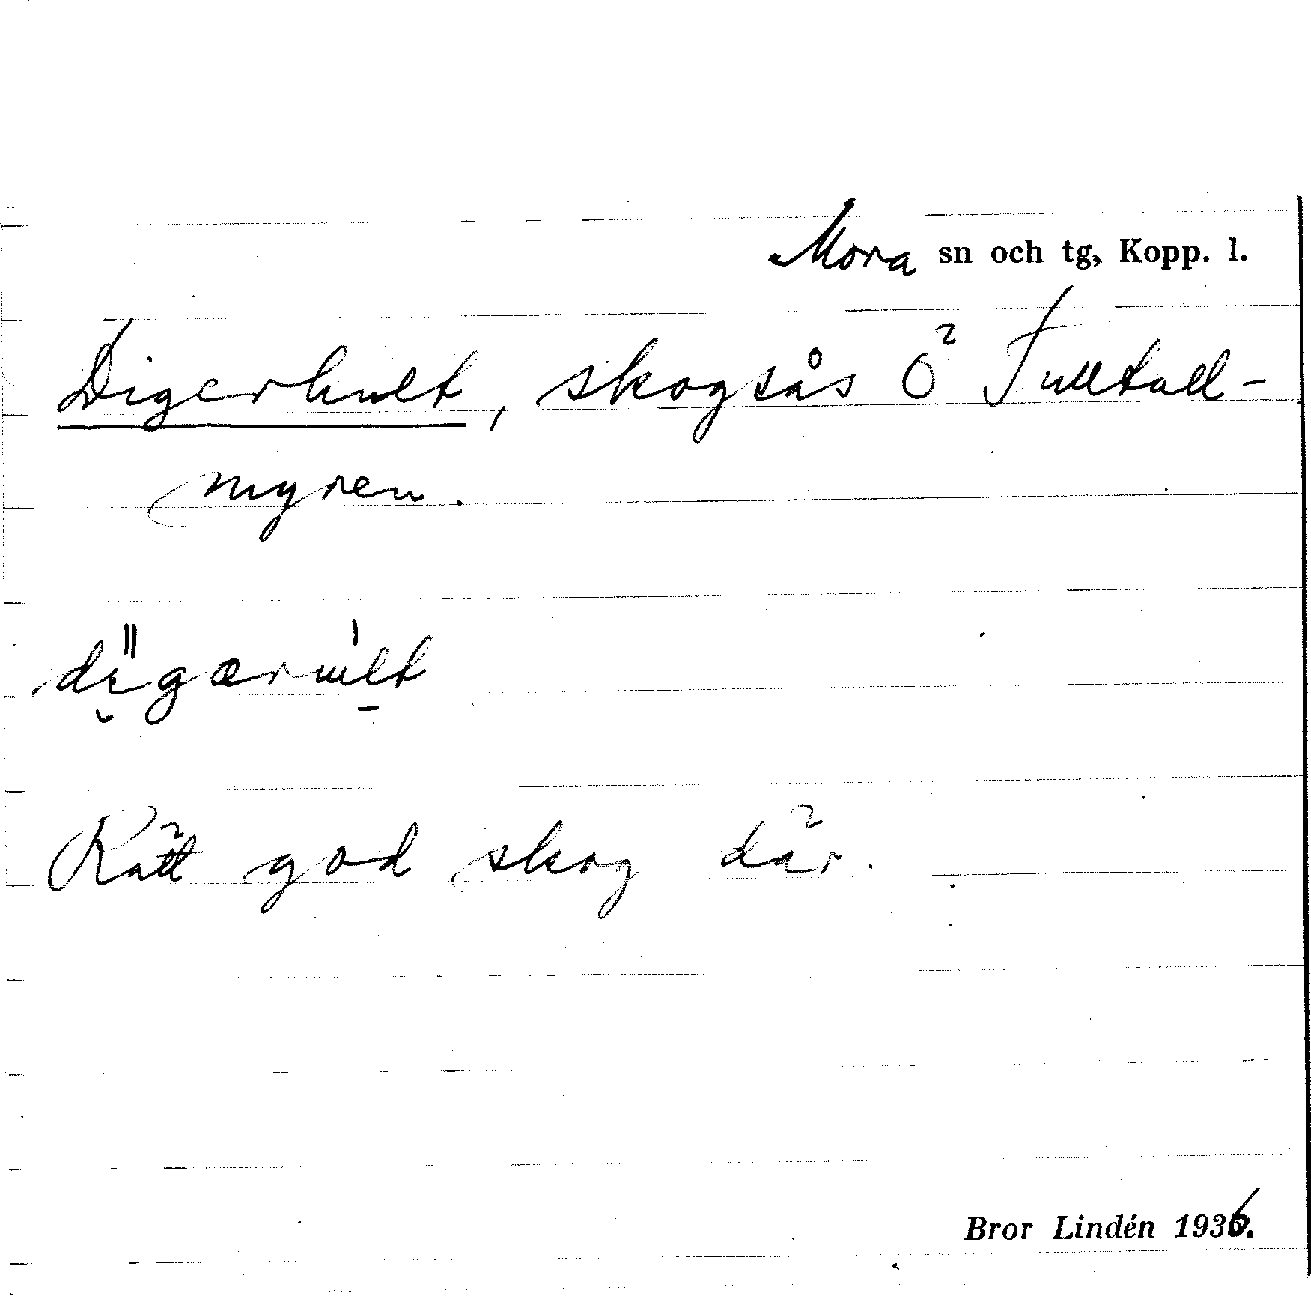 Mora sn och tg, Kopp. l.
Digerhult, skogsås Ö Tulltall-
myren.
Rätt god skog där.
Bror Lindén 1936.